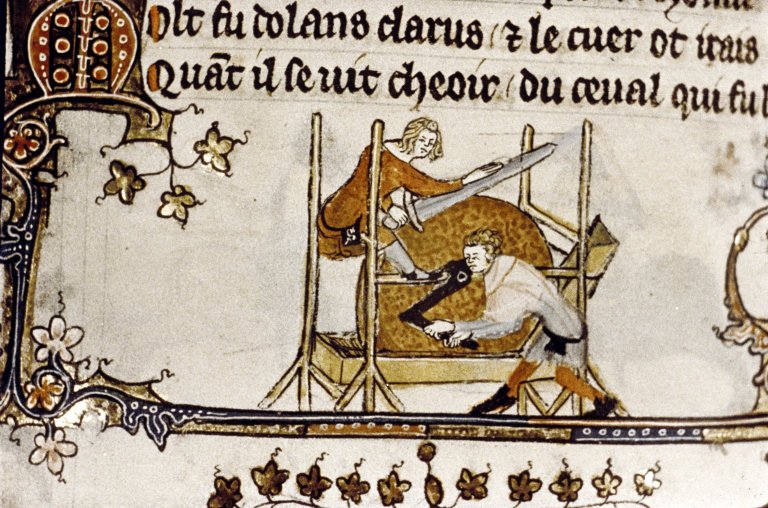 Molt fu dolans clarus / ⁊ le cuer ot irais
Quãt il se uit cheoir / du ceual qui fu